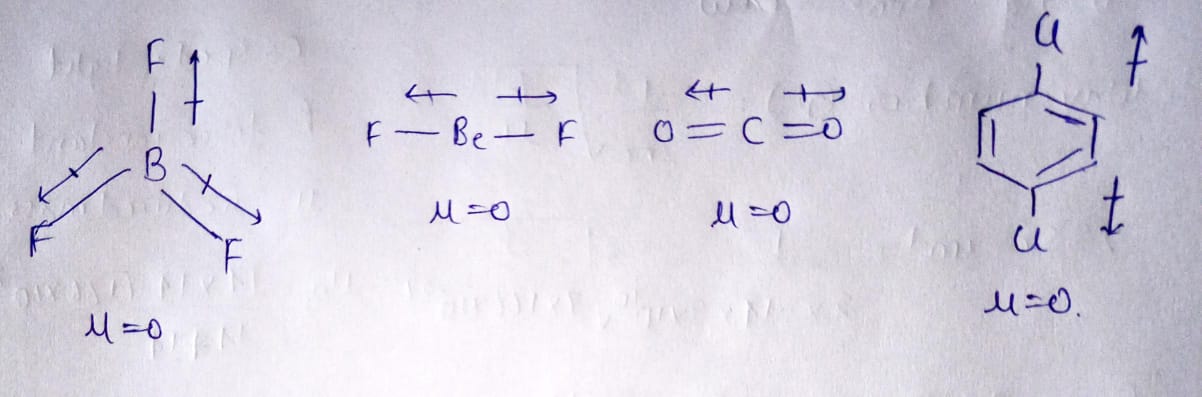 F
B
F F
μ=0
F—Be—F
μ=0
O=C=O
μ=0
Cl
Cl
μ=0.